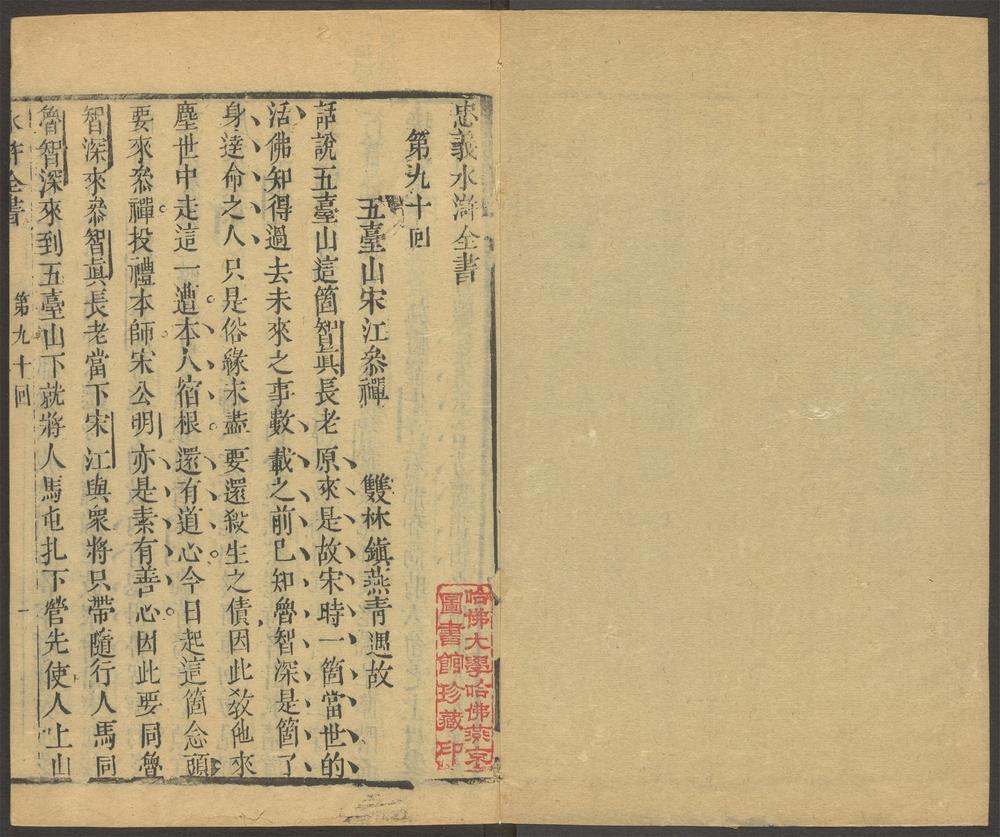 忠義水滸全書
第九十回
五臺山宋江叅禪　雙林鎮燕青遇故
話說五臺山這箇智眞長老原來是故宋時一箇當世的
活佛知得過去未來之事數載之前已知魯智深是箇了
身達命之人只是俗緣未盡要還殺生之債因此敎他來
塵世中走這一遭本人宿根還有道心今日起這箇念頭
要來叅禪投禮本師宋公明亦是素有善心因此要同魯
智深來叅智眞長老當下宋江與衆將只帶隨行人馬同
魯智深來到五臺山下就將人馬屯扎下營先使人上山
水滸全書　第九十回　一
哈佛大學哈佛燕京
圖書館珍藏印